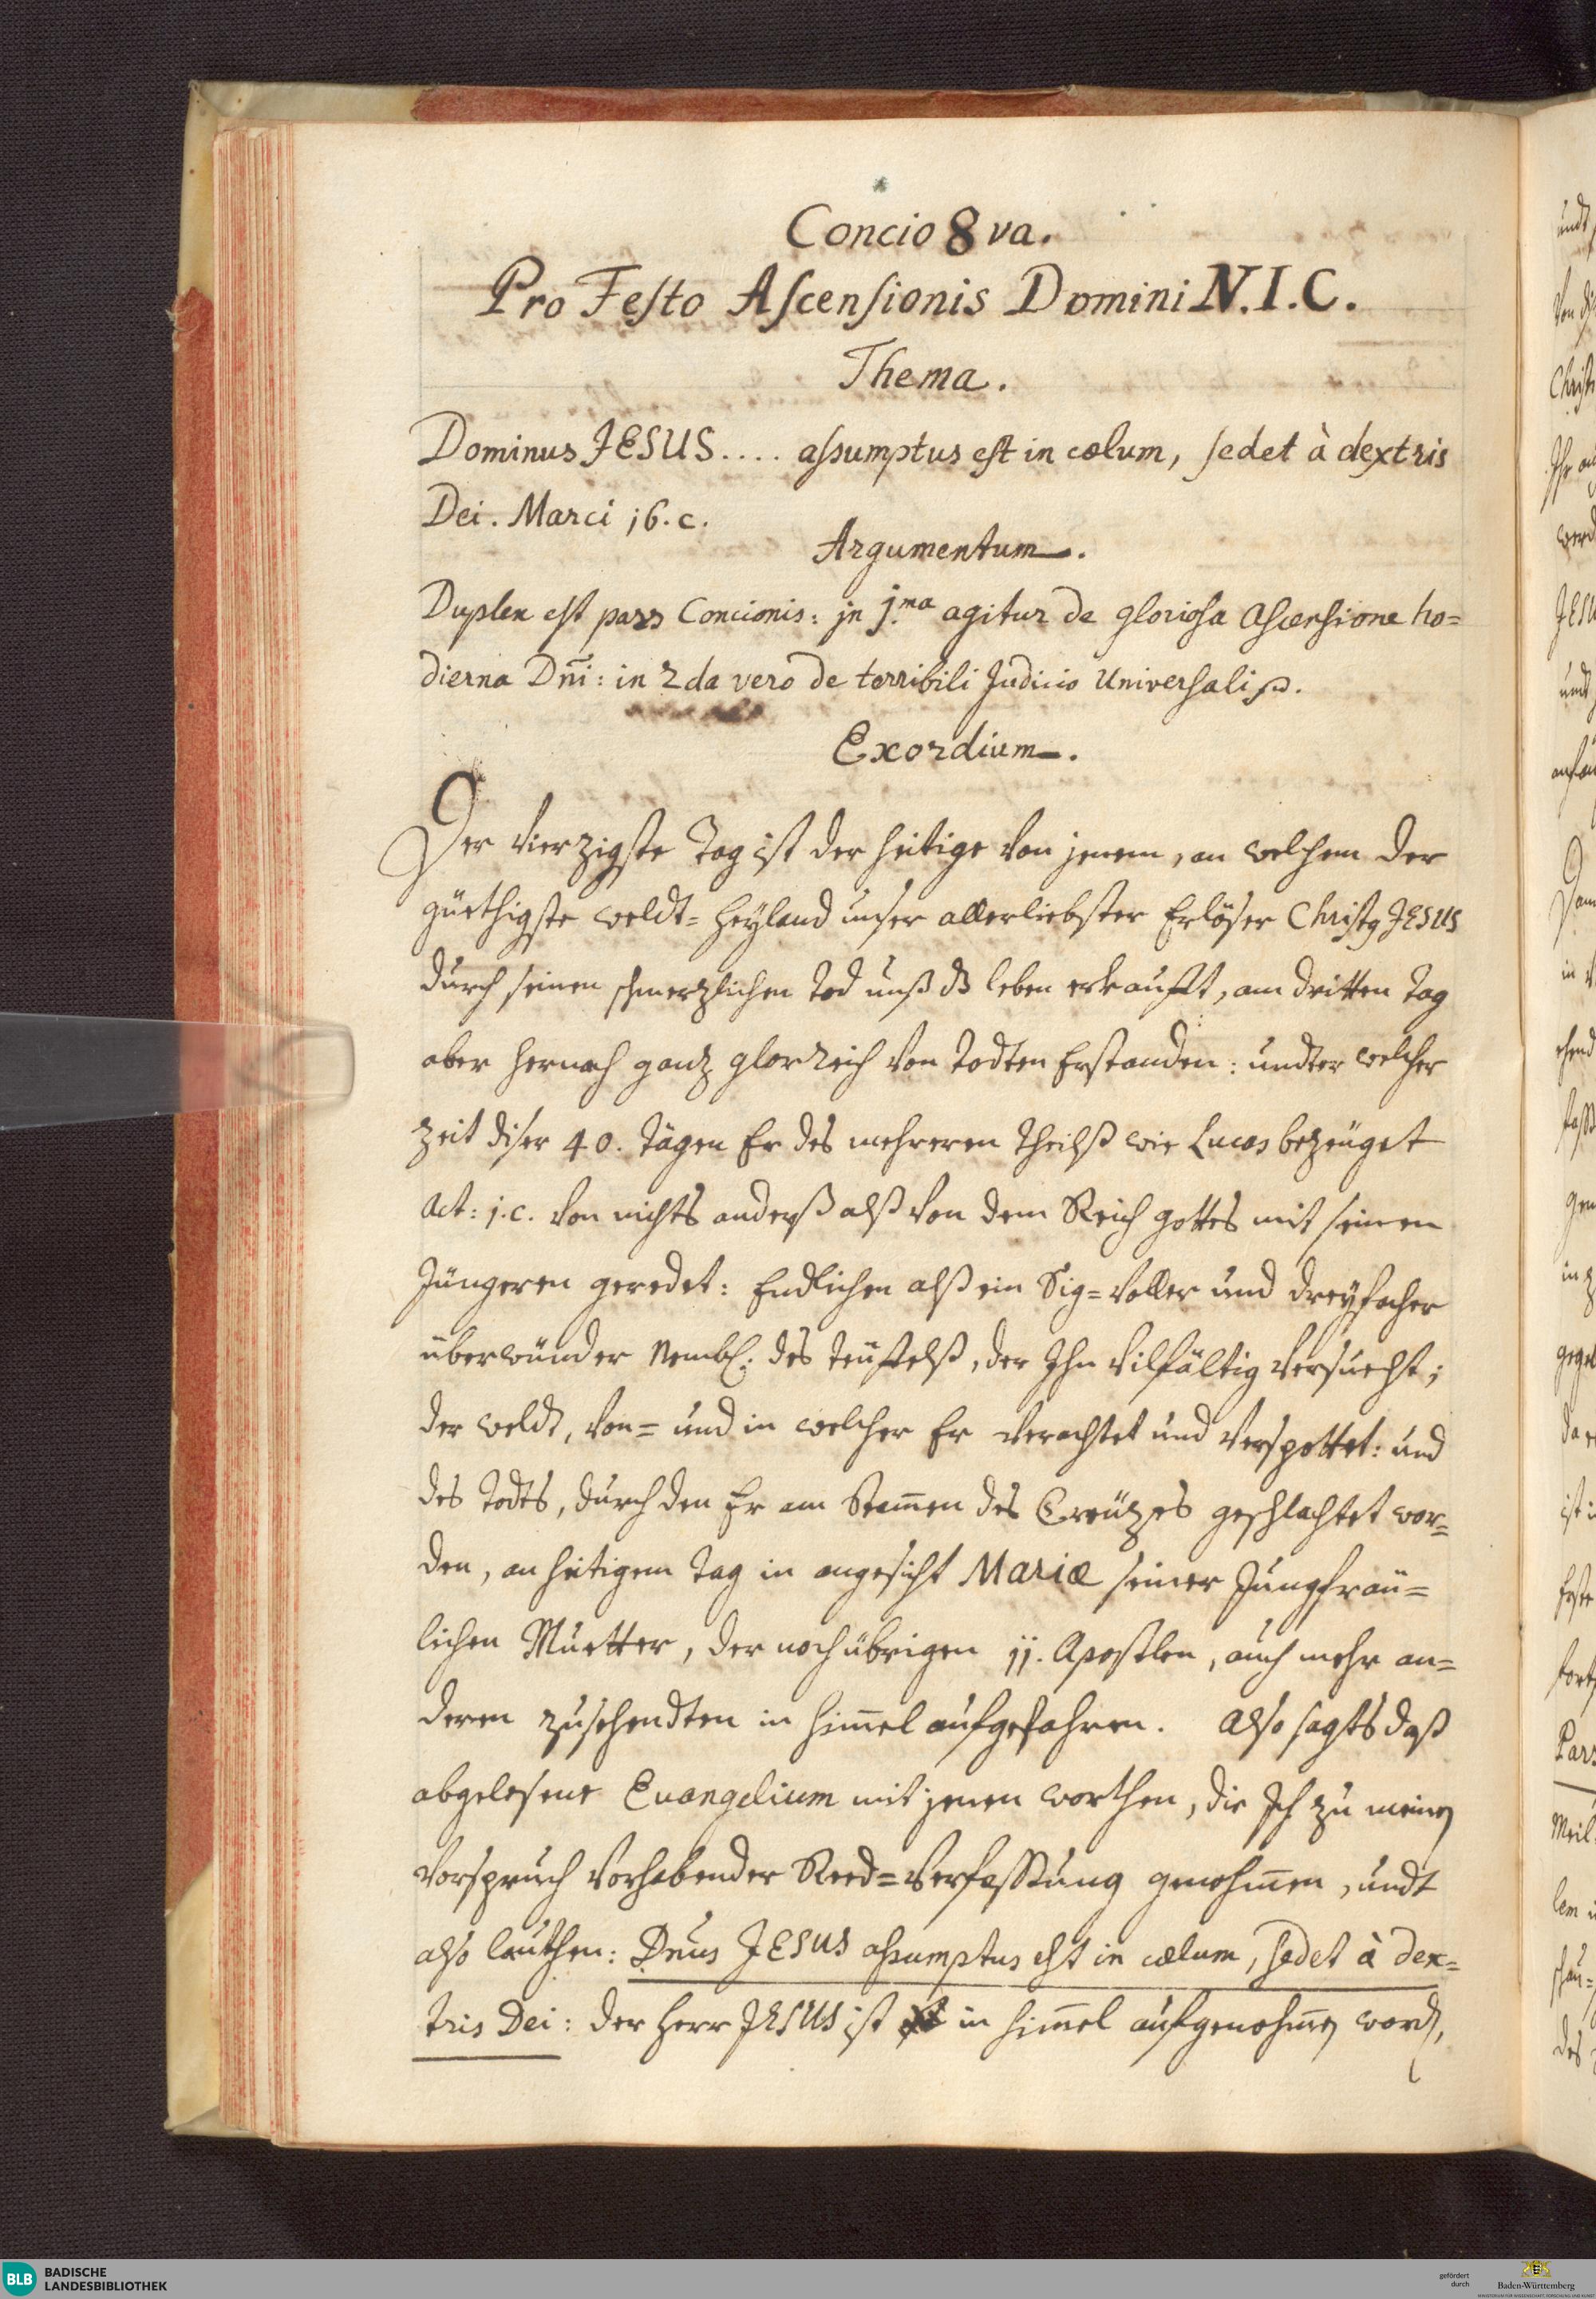 Concio 8va.
Pro Festo Ascensionis Domini N.I.C.
Thema.
Dominus JESUS.... assumptus est in cœlum, sedet à dextris
Dei. Marci 16.c.
Argumentum.
Duplex est pars Concionis: jn j.ma agitur de gloriosa Ascensione ho=
dierna Dñi: in 2da vero de terribili Judicio Universali
Exordium.
Der Vierzigste Tag ist der heitige von jenem, an welchem der
güethigste weldt=Heyland unser allerliebster Erlöser Christ9 JESUS
durch seinen schmerzlichen Tod unß dz leben erkaufft, am dritten Tag
aber hernach ganz glorreich von Todten Erstanden: undter welcher
Zeit diser 40. Tägen Er des mehreren Theilß wie Lucas bezeüget
Act: j.c. Von nichts anderß alß Von dem Reich gottes mit seinen
Jüngeren geredet: Endlichen alß ein Sig=Voller und dreyfacher
überwünder Nembl: des teüffelß, der Ihn Vilfältig Versuecht;
der weldt, Von= und in welcher Er Verachtet und Verspottet: und
des Todts, durch den Er am Stam̄en des Creützes geschlachtet wor=
den, an heitigem Tag in angesicht Mariæ seiner Jungfräu=
lichen Muetter, der noch übrigen jj. Apostlen, auch mehr an=
deren zusehendten in him̄el aufgefahren. Also sagts daß
abgelesene Euangelium mit jenen worthen, die Ich zu meinen
Vorspruch Vorhabender Reed=Verfassung genohm̄en, undt
also lauthen: Dnus JESUS assumptus est in cælum, sedet à dex=
tris Dei: der Herr JESUS ist in him̄el aufgenohm̄en word,
BLB BADISCHE
LANDESBIBLIOTHEK
gefördert
durch
Baden-Württemberg